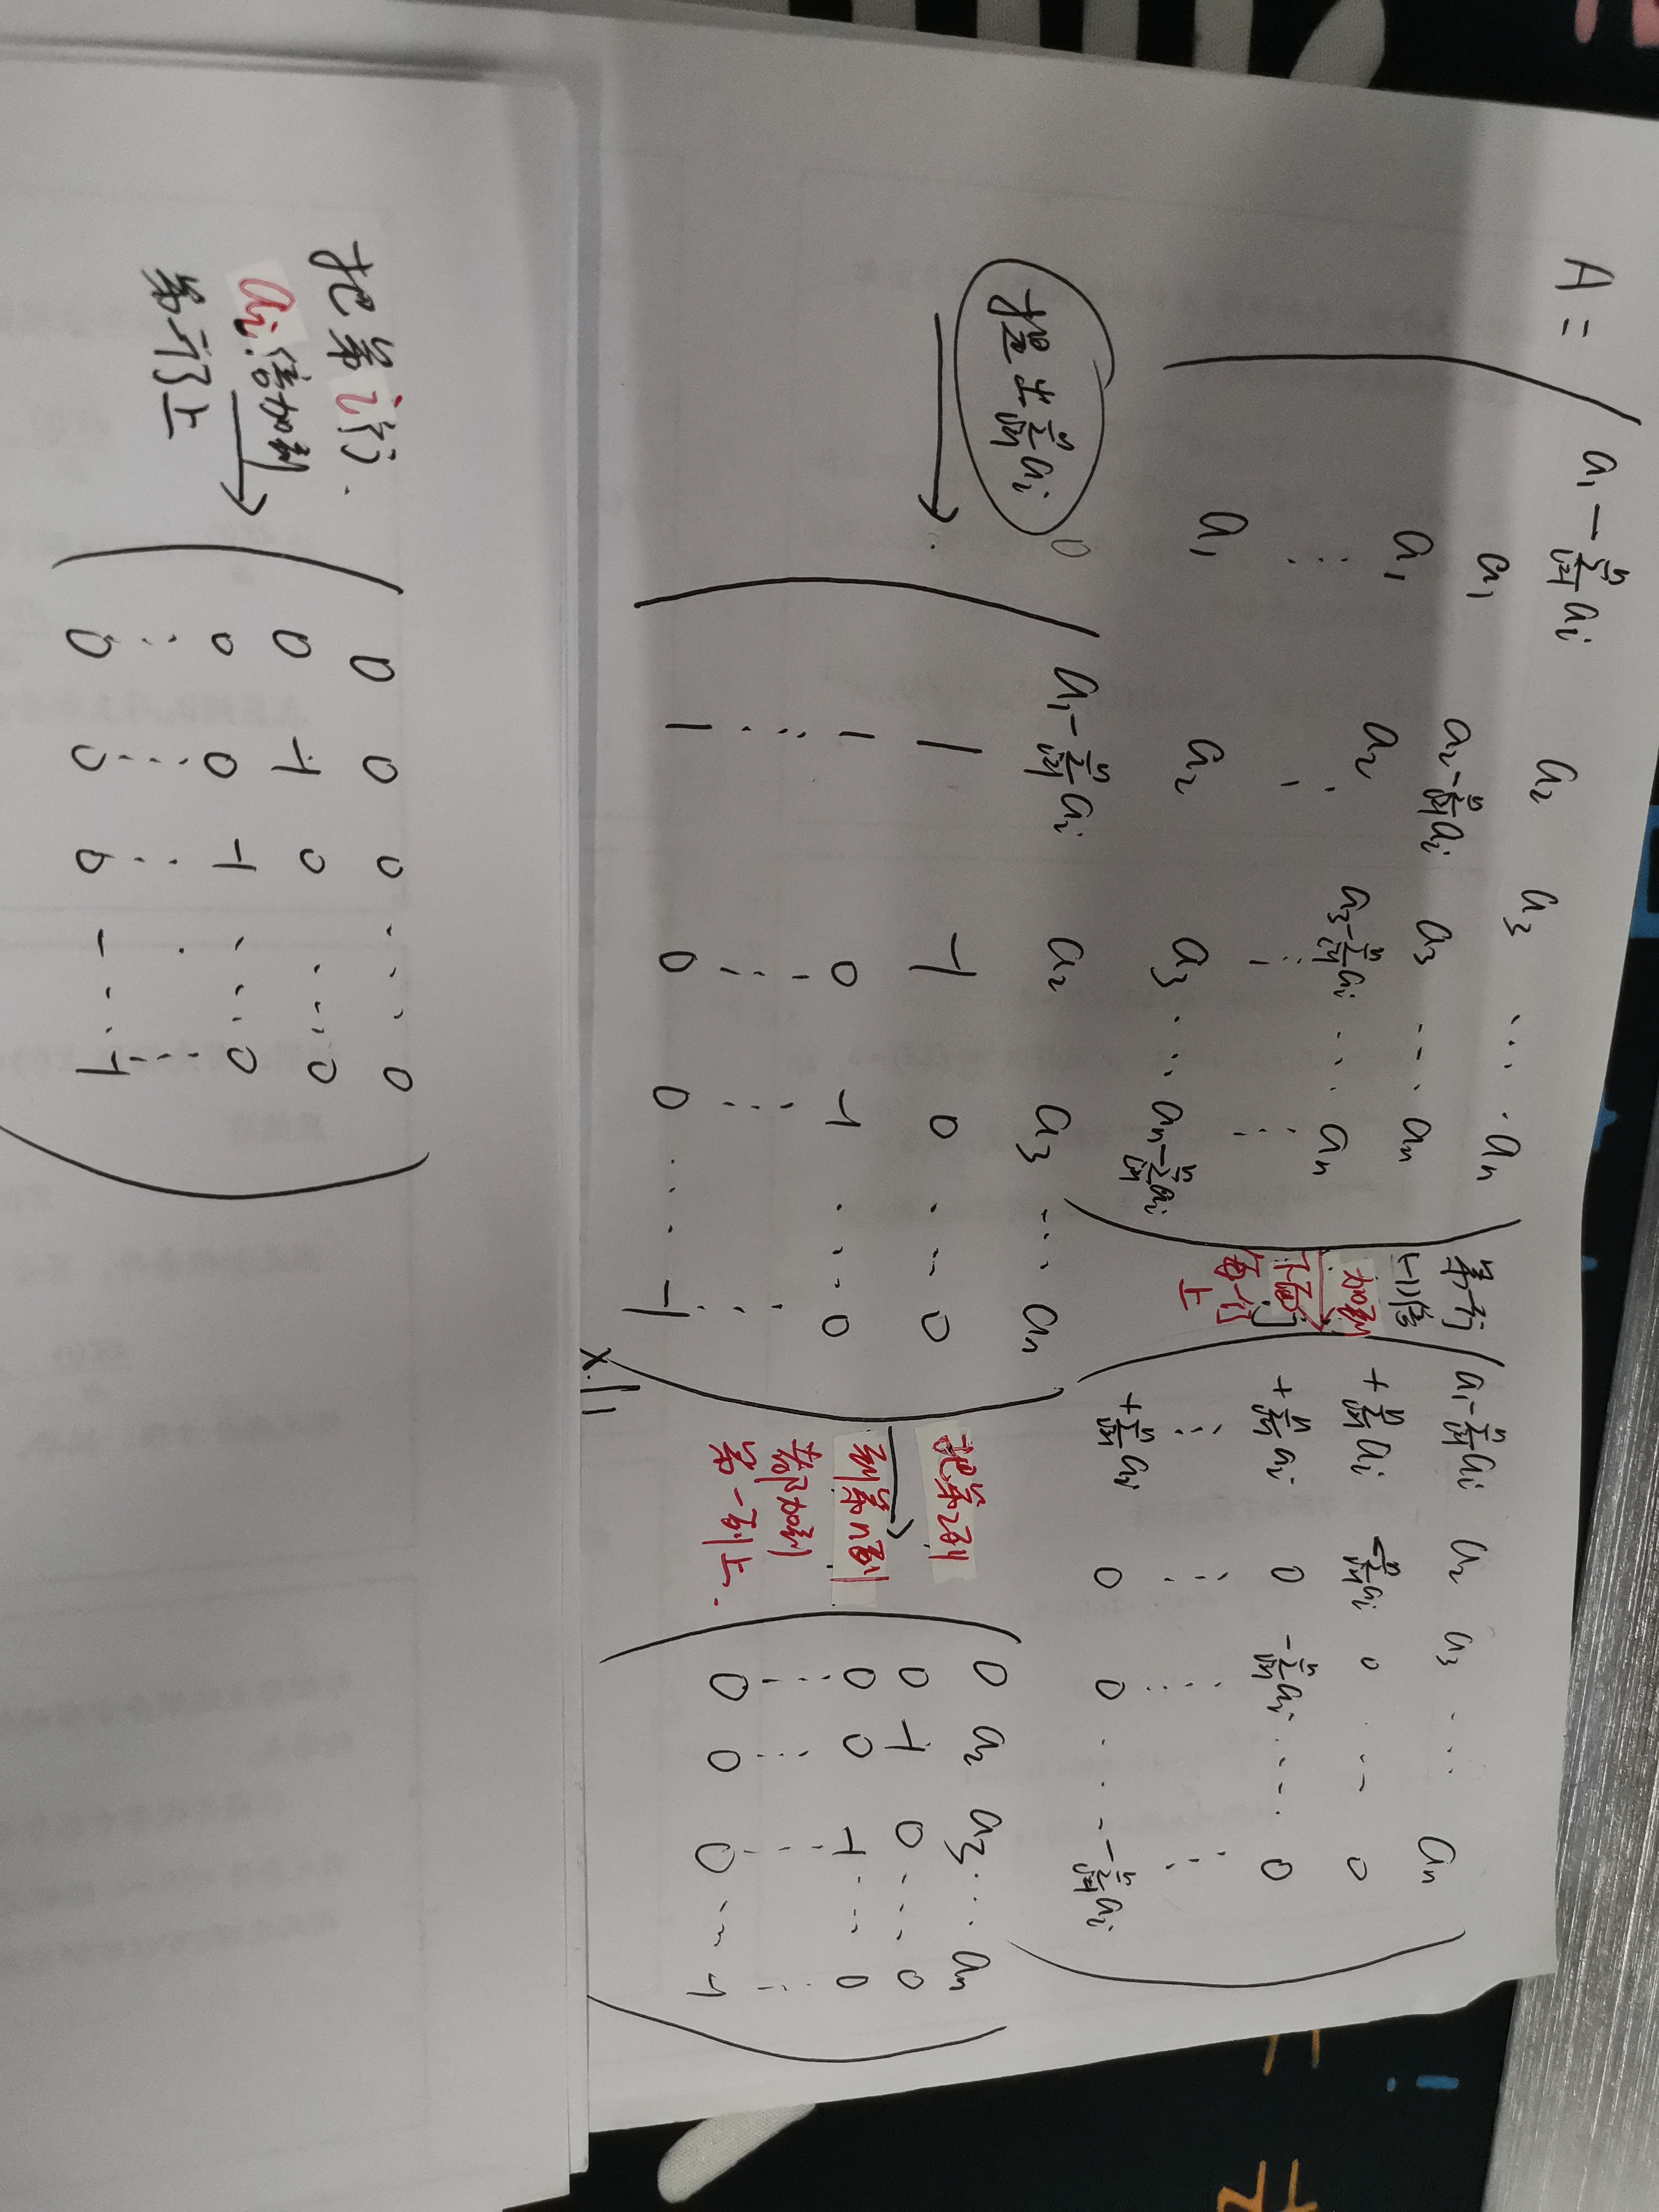 A = ( a₁ − Σⁿᵢ₌₁ aᵢ a₂ a₃ ⋯ aₙ
a₁ a₂ − Σⁿᵢ₌₁ aᵢ a₃ ⋯ aₙ
a₁ a₂ a₃ − Σⁿᵢ₌₁ aᵢ ⋯ aₙ
⋮ ⋮ ⋮ ⋮
a₁ a₂ a₃ ⋯ aₙ − Σⁿᵢ₌₁ aᵢ )
第一行
(-1)倍
加到
下面
每一行
上
( a₁ − Σⁿᵢ₌₁ aᵢ a₂ a₃ ⋯ aₙ
+ Σⁿᵢ₌₁ aᵢ − Σⁿᵢ₌₁ aᵢ 0 ⋯ 0
+ Σⁿᵢ₌₁ aᵢ 0 − Σⁿᵢ₌₁ aᵢ ⋯ 0
⋮ ⋮ ⋮ ⋮
+ Σⁿᵢ₌₁ aᵢ 0 0 ⋯ − Σⁿᵢ₌₁ aᵢ )
提出 Σⁿᵢ₌₁ aᵢ
( a₁ − Σⁿᵢ₌₁ aᵢ a₂ a₃ ⋯ aₙ
1 -1 0 ⋯ 0
1 0 -1 ⋯ 0
⋮ ⋮ ⋮ ⋮
1 0 0 ⋯ -1 )
把第2列
到第n列
都加到
第一列上.
( 0 a₂ a₃ ⋯ aₙ
0 -1 0 ⋯ 0
0 0 -1 ⋯ 0
⋮ ⋮ ⋮ ⋮
0 0 0 ⋯ -1 )
把第i行.
aᵢ倍加到
第一行上
( 0 0 0 ⋯ 0
0 -1 0 ⋯ 0
0 0 -1 ⋯ 0
⋮ ⋮ ⋮ ⋮
0 0 0 ⋯ -1 )